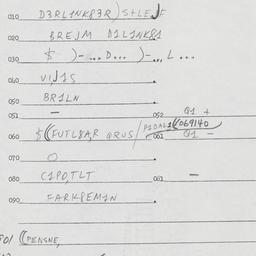 010 D3RL1NK83R)S+LEJF
020 BREJM D1L1NK81
030 $ )-...D... )-... L...
040 VIJ1S
050 BR1LN
051 — 052 Q1 +
060 $((FUTLBA,R QRUS/P1DAL1((069140
061 Q1 —
070 O
080 C1PO,TLT 081 —
090 FARK8EM1N
((PENSNE,